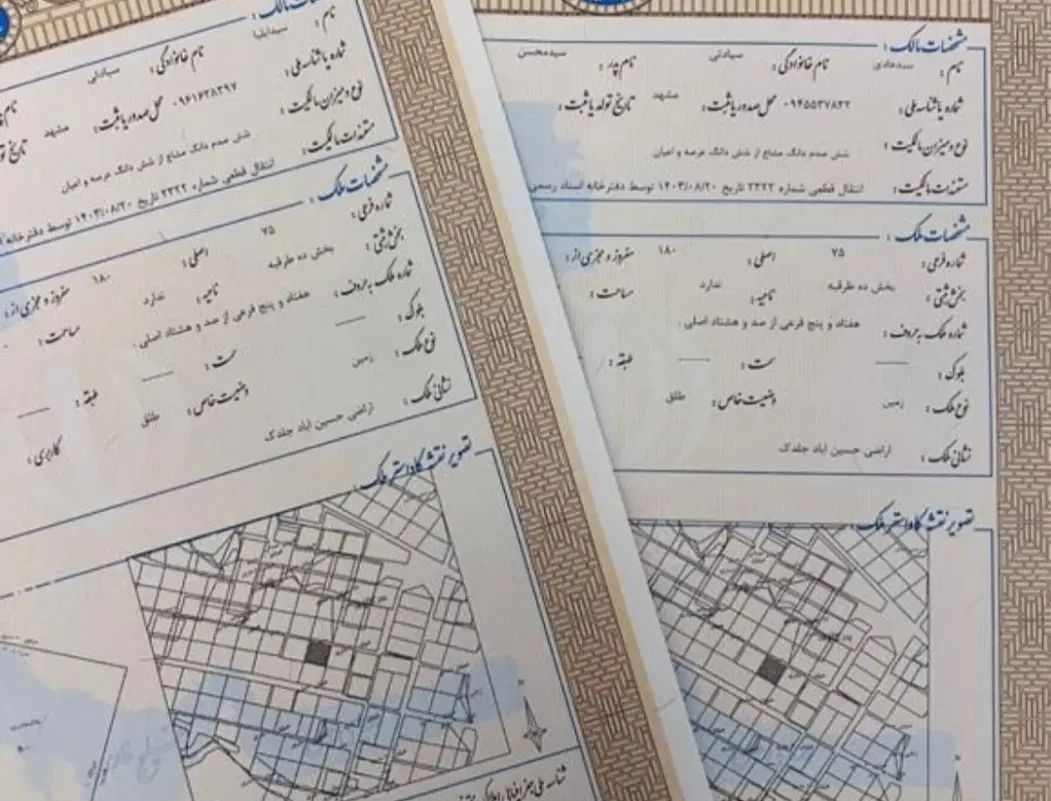 مشخصات مالک :
نام : سیدهادی نام خانوادگی : سیادتی نام پدر : سیدمحسن
شماره یا شناسه ملی : ۰۹۴۵۵۳۷۸۳۲ محل صدور یا ثبت : مشهد تاریخ تولد یا ثبت :
نوع و میزان مالکیت : شش صدم دانگ مشاع از شش دانگ عرصه و اعیان
مستندات مالکیت : انتقال قطعی شماره ۲۳۲۲ تاریخ ۱۴۰۳/۰۸/۲۰ توسط دفترخانه اسناد رسمی
مشخصات ملک :
شماره فرعی : ۷۵ اصلی : ۱۸۰ مفروز و مجزی از :
بخش ثبتی : بخش ده طرقبه ناحیه : ندارد مساحت :
شماره ملک به حروف : هفتاد و پنج فرعی از صد و هشتاد اصلی .
بلوک : سمت : طبقه :
نوع ملک : زمین وضعیت خاص : طلق
نشانی ملک : اراضی حسین اباد جلدک
تصویر نقشه کاداستر ملک
مشخصات مالک :
نام : سیدایلیا نام خانوادگی : سیادتی نام
شماره یا شناسه ملی : ۰۹۶۱۶۲۸۳۹۷ محل صدور یا ثبت : مشهد تاریخ
نوع و میزان مالکیت : شش صدم دانگ مشاع از شش دانگ عرصه و اعیان
مستندات مالکیت : انتقال قطعی شماره ۲۳۲۲ تاریخ ۱۴۰۳/۰۸/۲۰ توسط دفترخانه
مشخصات ملک :
شماره فرعی : ۷۵ اصلی : ۱۸۰ مفروز و مجزی از :
بخش ثبتی : بخش ده طرقبه ناحیه : ندارد مساحت :
شماره ملک به حروف : هفتاد و پنج فرعی از صد و هشتاد اصلی .
بلوک : سمت : طبقه :
نوع ملک : زمین وضعیت خاص : طلق کاربری :
نشانی ملک : اراضی حسین اباد جلدک
تصویر نقشه کاداستر ملک